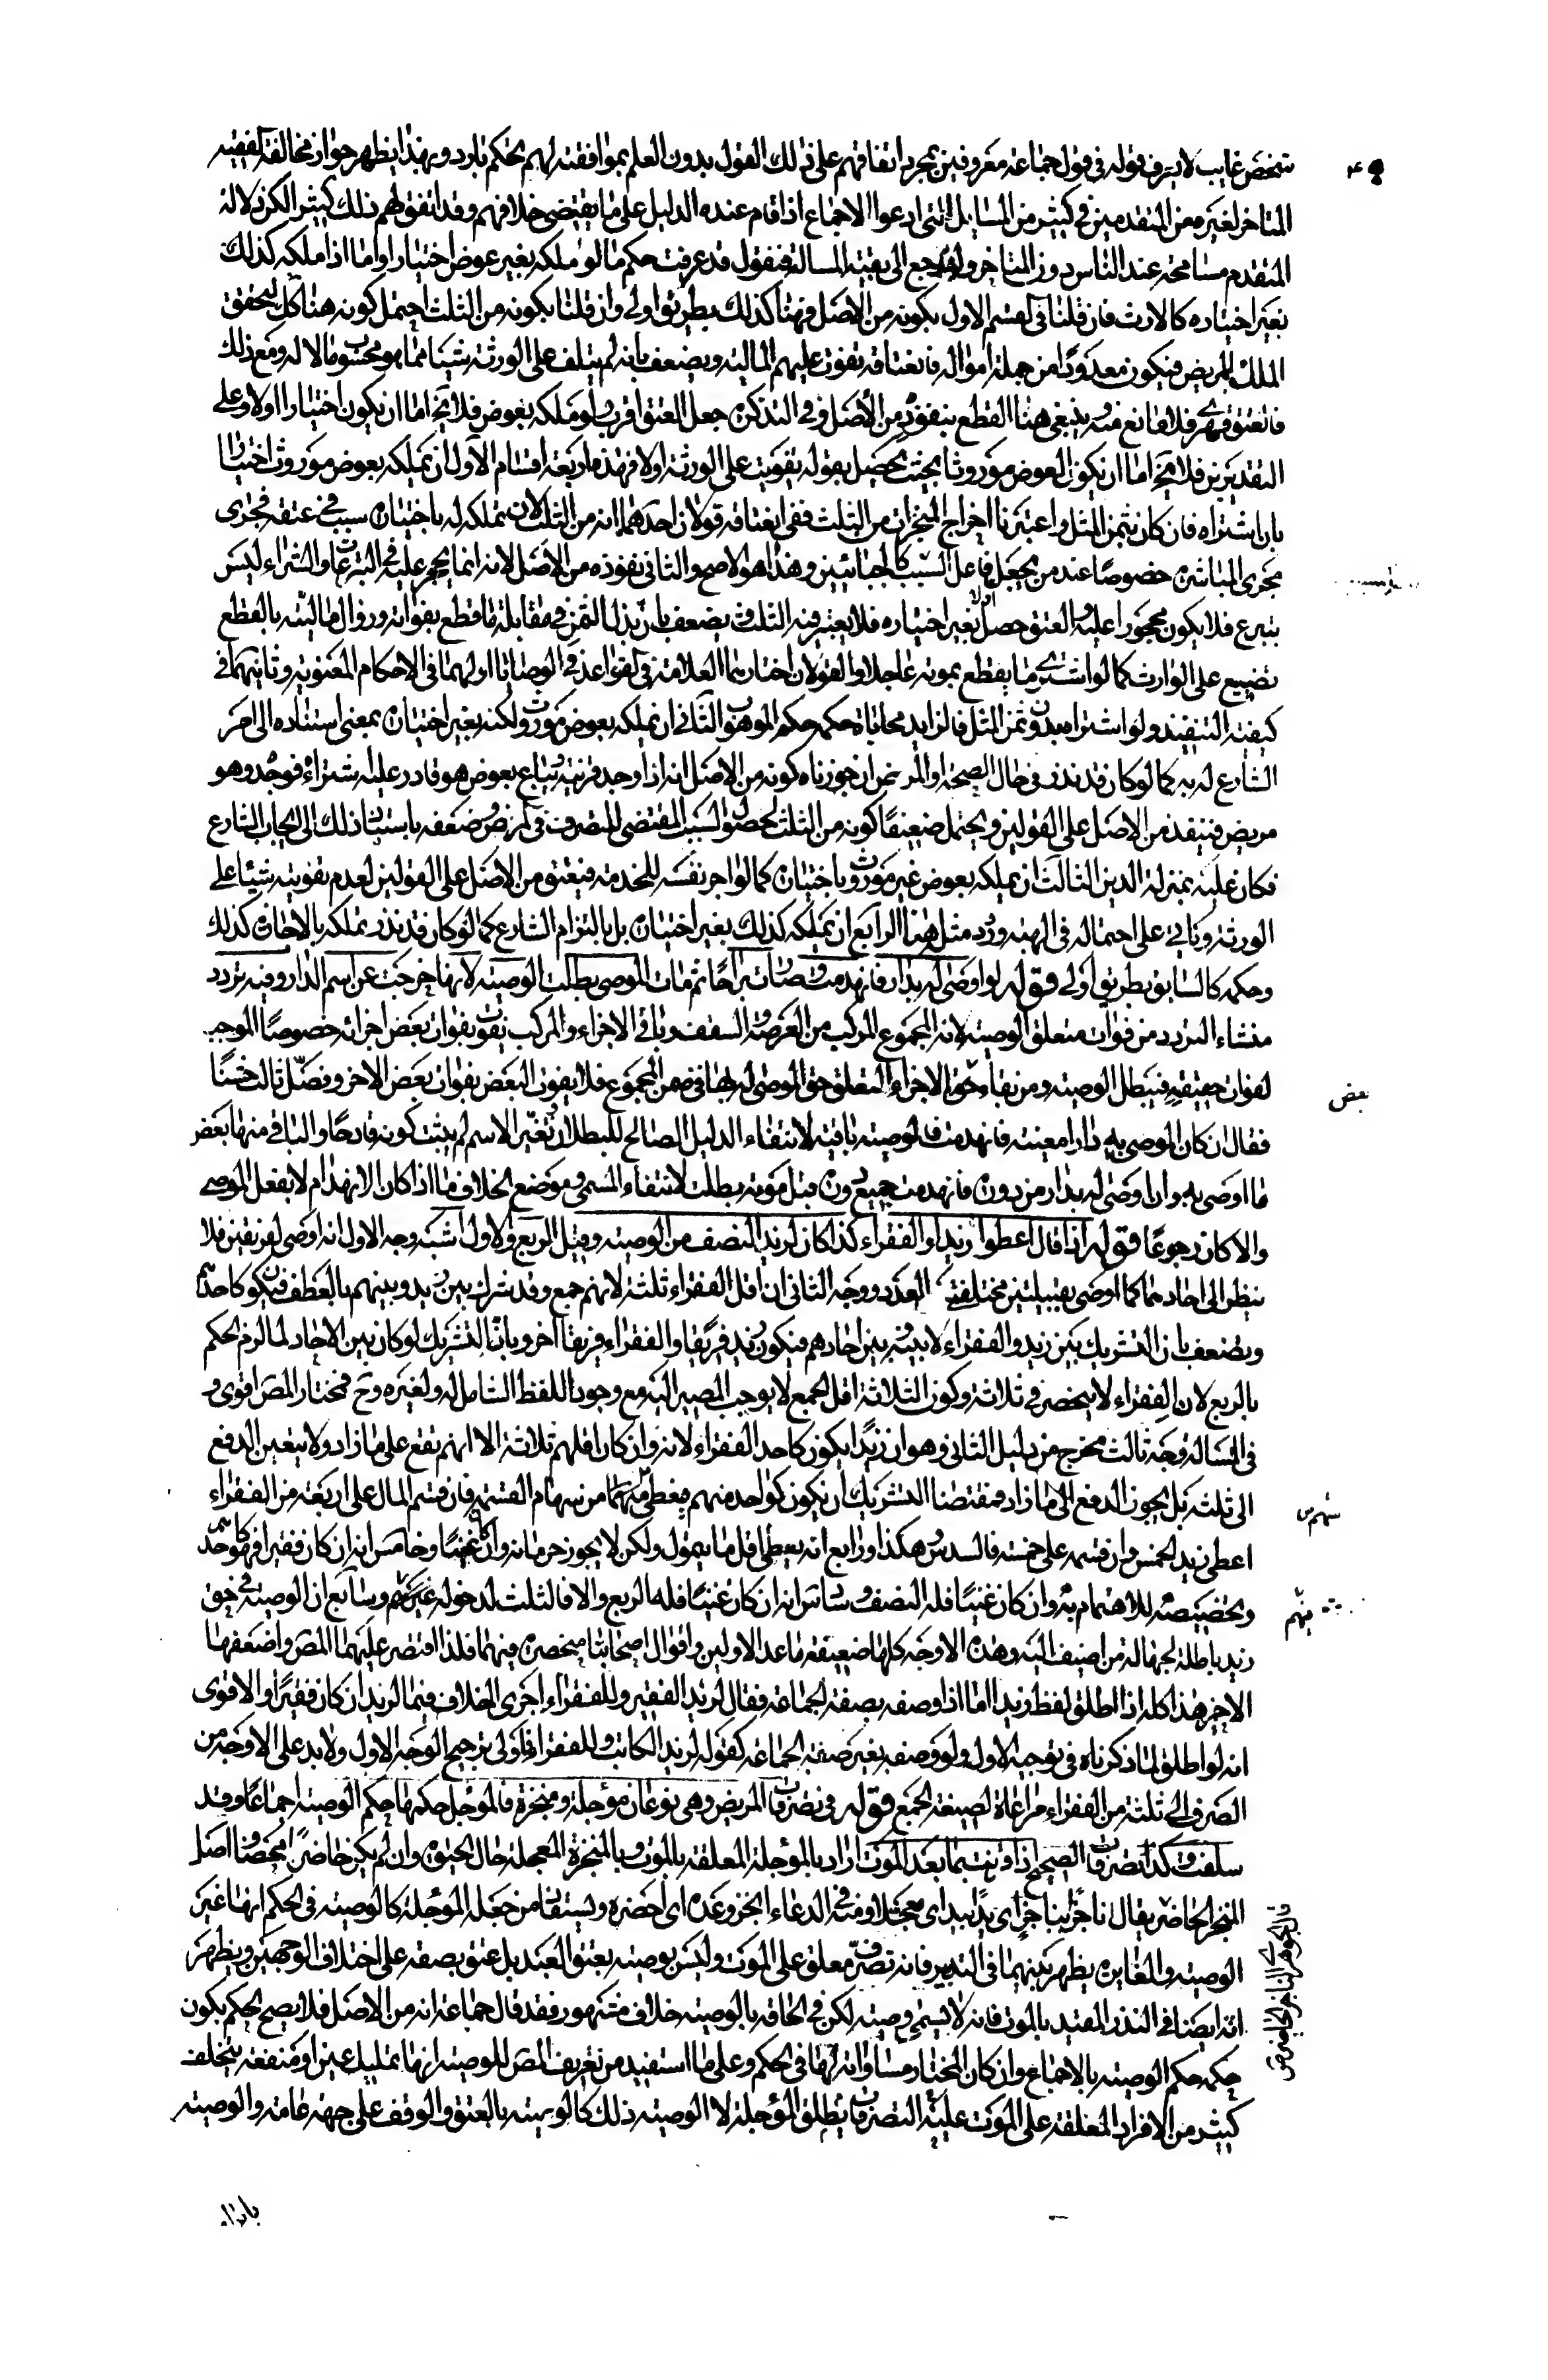 شخص غايب لا يعرف قوله في قول جماعة معروفين بمجرد اتفاقهم على ذلك القول بدون العلم بموافقته لهم تحكم بارد وبهذا يظهر جواز مخالفة الفقيه
المتاخر لغيره من المتقدمين في كثير من المسايل التي ادعوا الاجماع اذا قام عنده الدليل على ما يقتضي خلافهم وقد اتفق لهم ذلك كثيرا لكن زلة
المتقدم مسامحة عند الناس دون المتاخر ولنرجع الى بقية المسالة فنقول قد عرفت حكم ما لو ملكه بغير عوض اختيارا واما اذا ملكه كذلك
بغير اختياره كالارث فان قلنا في القسم الاول بكونه من الاصل فهنا كذلك بطريق اولى وان قلنا بكونه من الثلث احتمل كونه هنا كك لتحقق
الملك للمريض فيكون معدودا من جملة امواله فانعتاقه تفوت عليهم المالية ويضعف بانه لم يتلف على الورثة شيئا مما هو محسوب مالا له ومع ذلك
فالعتق قهري فلا مانع منه وينبغي هنا القطع بنفوذه من الاصل وفي التذكرة جعل العتق اقرب ولو ملكه بعوض فلا يخ اما ان يكون اختيارا اولا وعلى
التقديرين فلا يخ اما ان يكون العوض موروثا بحيث يحصل بقوله تفويت على الورثة اولا فهذه اربعة اقسام الاول ان يملكه بعوض موروث اختيارا
بان اشتراه فان كان بثمن المثل واعتبرنا اخراج المنجزات من الثلث ففي انعتاقه قولان احدهما انه من الثلث لان تملكه له باختياره سبب في عتقه فجرى
مجرى المباشرة خصوصا عند من يجعل فاعل السبب كالجبائيين وهذا هو الاصح والثاني نفوذه من الاصل لانه انما يحجر عليه في التبرعات والشراء ليس
بتبرع فلا يكون محجورا عليه والعتق حصل اولا بغير اختياره فلا يعتبر فيه الثلث ويضعف بان بذل الثمن في مقابلة ما قطع بفواته وزوال ماليته بالقطع
تضييع على الوارث كما لو اشترى ما يقطع بموته عاجلا والقولان اختارهما العلامة في القواعد في الوصايا اولهما في الاحكام المعنوية وثانيهما في
كيفية التنفيذ ولو اشتراه بدون ثمن المثل فالزايد محاباة حكمه حكم الموهوب الثاني ان يملكه بعوض موروث ولكنه بغير اختياره بمعنى استناده الى امر
الشارع له به كما لو كان قد نذر في حال الصحة او المرض ان جوزناه كونه من الاصل انه اذا وجد قريبه يباع بعوض هو قادر عليه شتراه فوجد وهو
مريض فينفذ من الاصل على القولين ويحتمل ضعيفا كونه من الثلث لحصول السبب المقتضي للتصرف في المرض وضعفه باستناد ذلك الى ايجاب الشارع
فكان عليه بمنزلة الدين الثالث ان يملكه بعوض غير موروث وباختياره كما لو اجر نفسه للخدمة فيعتق من الاصل على القولين لعدم تفويته شيئا على
الورثة وياتي على احتماله في الهبة ورود مثل هنا الرابع ان يملكه كذلك بغير اختياره بل بالتزام الشارع كما لو كان قد نذر تملكه بالاجارة كذلك
وحكمه كالسابق بطريق اولى قوله لو اوصى له بدار فانهدمت وصارت براحا ثم مات الموصي بطلت الوصية لانها خرجت عن اسم الدار وفيه تردد
منشاء التردد من فوات متعلق الوصية لانه المجموع المركب من العرصة والسقف وباقي الاجزاء والمركب يفوت بفوات بعض اجزائه خصوصا الموجب
لفوات حقيقته فتبطل الوصية ومن بقاء حق الاجزاء لتعلق حق الموصى له بها في ضمن المجموع فلا يفوت البعض بفوات بعض الاخر وفصل ثالث حسنا
فقال ان كان الموصى به دارا معينة فانهدمت فالوصية باقية لانتفاء الدليل الصالح للبطلان وتغير الاسم لم يثبت كونه قادحا والباقي منها بعض
ما اوصى به وان اوصى له بدار من دوره فانهدمت جميع دوره قبل موته بطلت لانتفاء المسمى وموضع الخلاف ما اذا كان الانهدام لا بفعل الموصي
والا كان رجوعا قوله اذا قال اعطوا زيدا والفقراء كذا كان لزيد النصف من الوصية وقيل الربع والاول اشبه وجه الاول انه اوصى لفريقين فلا
ينظر الى احادهما كما لو اوصى بقبيلتين مختلفتي العدد ووجه الثاني ان اقل الفقراء ثلثة لانهم جمع وقد شرك بين زيد وبينهم بالعطف فيكون كاحدهم
ويضعف بان التشريك بين زيد والفقراء لا بينه وبين احادهم فيكون زيد فريقا والفقراء فريقا اخر وبان التشريك لو كان بين الاحاد لما لزم الحكم
بالربع لان الفقراء لا ينحصر في ثلاثة وكون الثلاثة اقل الجمع لا يوجب المصير اليه مع وجود اللفظ الشامل له ولغيره وح فمختار المصر اقوى و
في المسالة وجه ثالث مخرج من دليل الثاني وهو ان زيدا يكون كاحد الفقراء لانه وان كان اقلهم ثلاثة الا انهم تقع على ما زاد ولا يتعين الدفع
الى ثلثة بل يجوز الدفع الى ما زاد فمقتضى التشريك ان يكون كواحد منهم فيعطى سهما من سهام القسمة فان قسم المال على اربعة من الفقراء
اعطي زيد الخمس وان قسمه على خمسة فالسدس هكذا ورابع انه يعطى اقل ما يتمول ولكن لا يجوز حرمانه وان كان غنيا وخامس انه ان كان فقيرا فهو كاحدهم
وتخصيصه للاهتمام به وان كان غنيا فله النصف وسادس انه ان كان غنيا فله الربع والا فالثلث لدخوله فيهم وسابع ان الوصية في حق
زيد باطلة لجهالة من اضيف اليه وهذه الاوجه كلها ضعيفة ما عدا الاولين واقوال اصحابنا منحصرة فيهما فلذا اقتصر عليهما المصر واضعفها
الاخير هذا كله اذا اطلق لفظ زيد اما اذا وصفه بصفة الجماعة فقال لزيد الفقير وللفقراء اجرى الخلاف فيما لزيد ان كان فقيرا والاقوى
انه لو اطلق لما ذكرناه في توجيه الاول ولو وصفه بغير صفة الجماعة كقوله لزيد الكاتب وللفقراء فاولى بترجيح الوجه الاول ولا بد على الاوجه من
الصرف الى ثلثة من الفقراء مراعاة لصيغة الجمع قوله في تصرفات المريض وهي نوعان مؤجلة ومنجزة فالمؤجل حكمها حكم الوصية اجماعا وقد
سلفت وكذا تصرفات الصحيح اذا قرنت بما بعد الموت اراد بالمؤجلة المعلقة بالموت وبالمنجزة المعجلة حال الحيوة وان لم يكن حاضرا محضا واصل
المنجز الحاضر يقال ناجزا بناجز اي يدا بيد اي معجلا ومنه في الدعاء انجز وعده اي احضره ويستفاد من جعله المؤجلة كالوصية في الحكم انها غير
الوصية والمغايرة يظهر بينهما في التدبير فانه تصرف معلق على الموت وليس بوصية بعتق العبد بل عتق بصفة على اختلاف الوجهين ويظهر
اثره ايضا في النذر المقيد بالموت فانه لا يسمى وصية لكن في الحاقه بالوصية خلاف مشهور فقد قال جماعة انه من الاصل فلا يصح الحكم بكون
حكمه حكم الوصية بالاجماع وان كان المختار مساواته لها في الحكم وعلى ما استفيد من تعريف المصر للوصية انها تمليك عين او منفعة يتخلف
كثير من الافراد المعلقة على الموت عليه التصرفات يطلق المؤجلة لا الوصية ذلك كالوصية بالعتق والوقف على جهة عامة والوصية
بعض
سهم
منهم